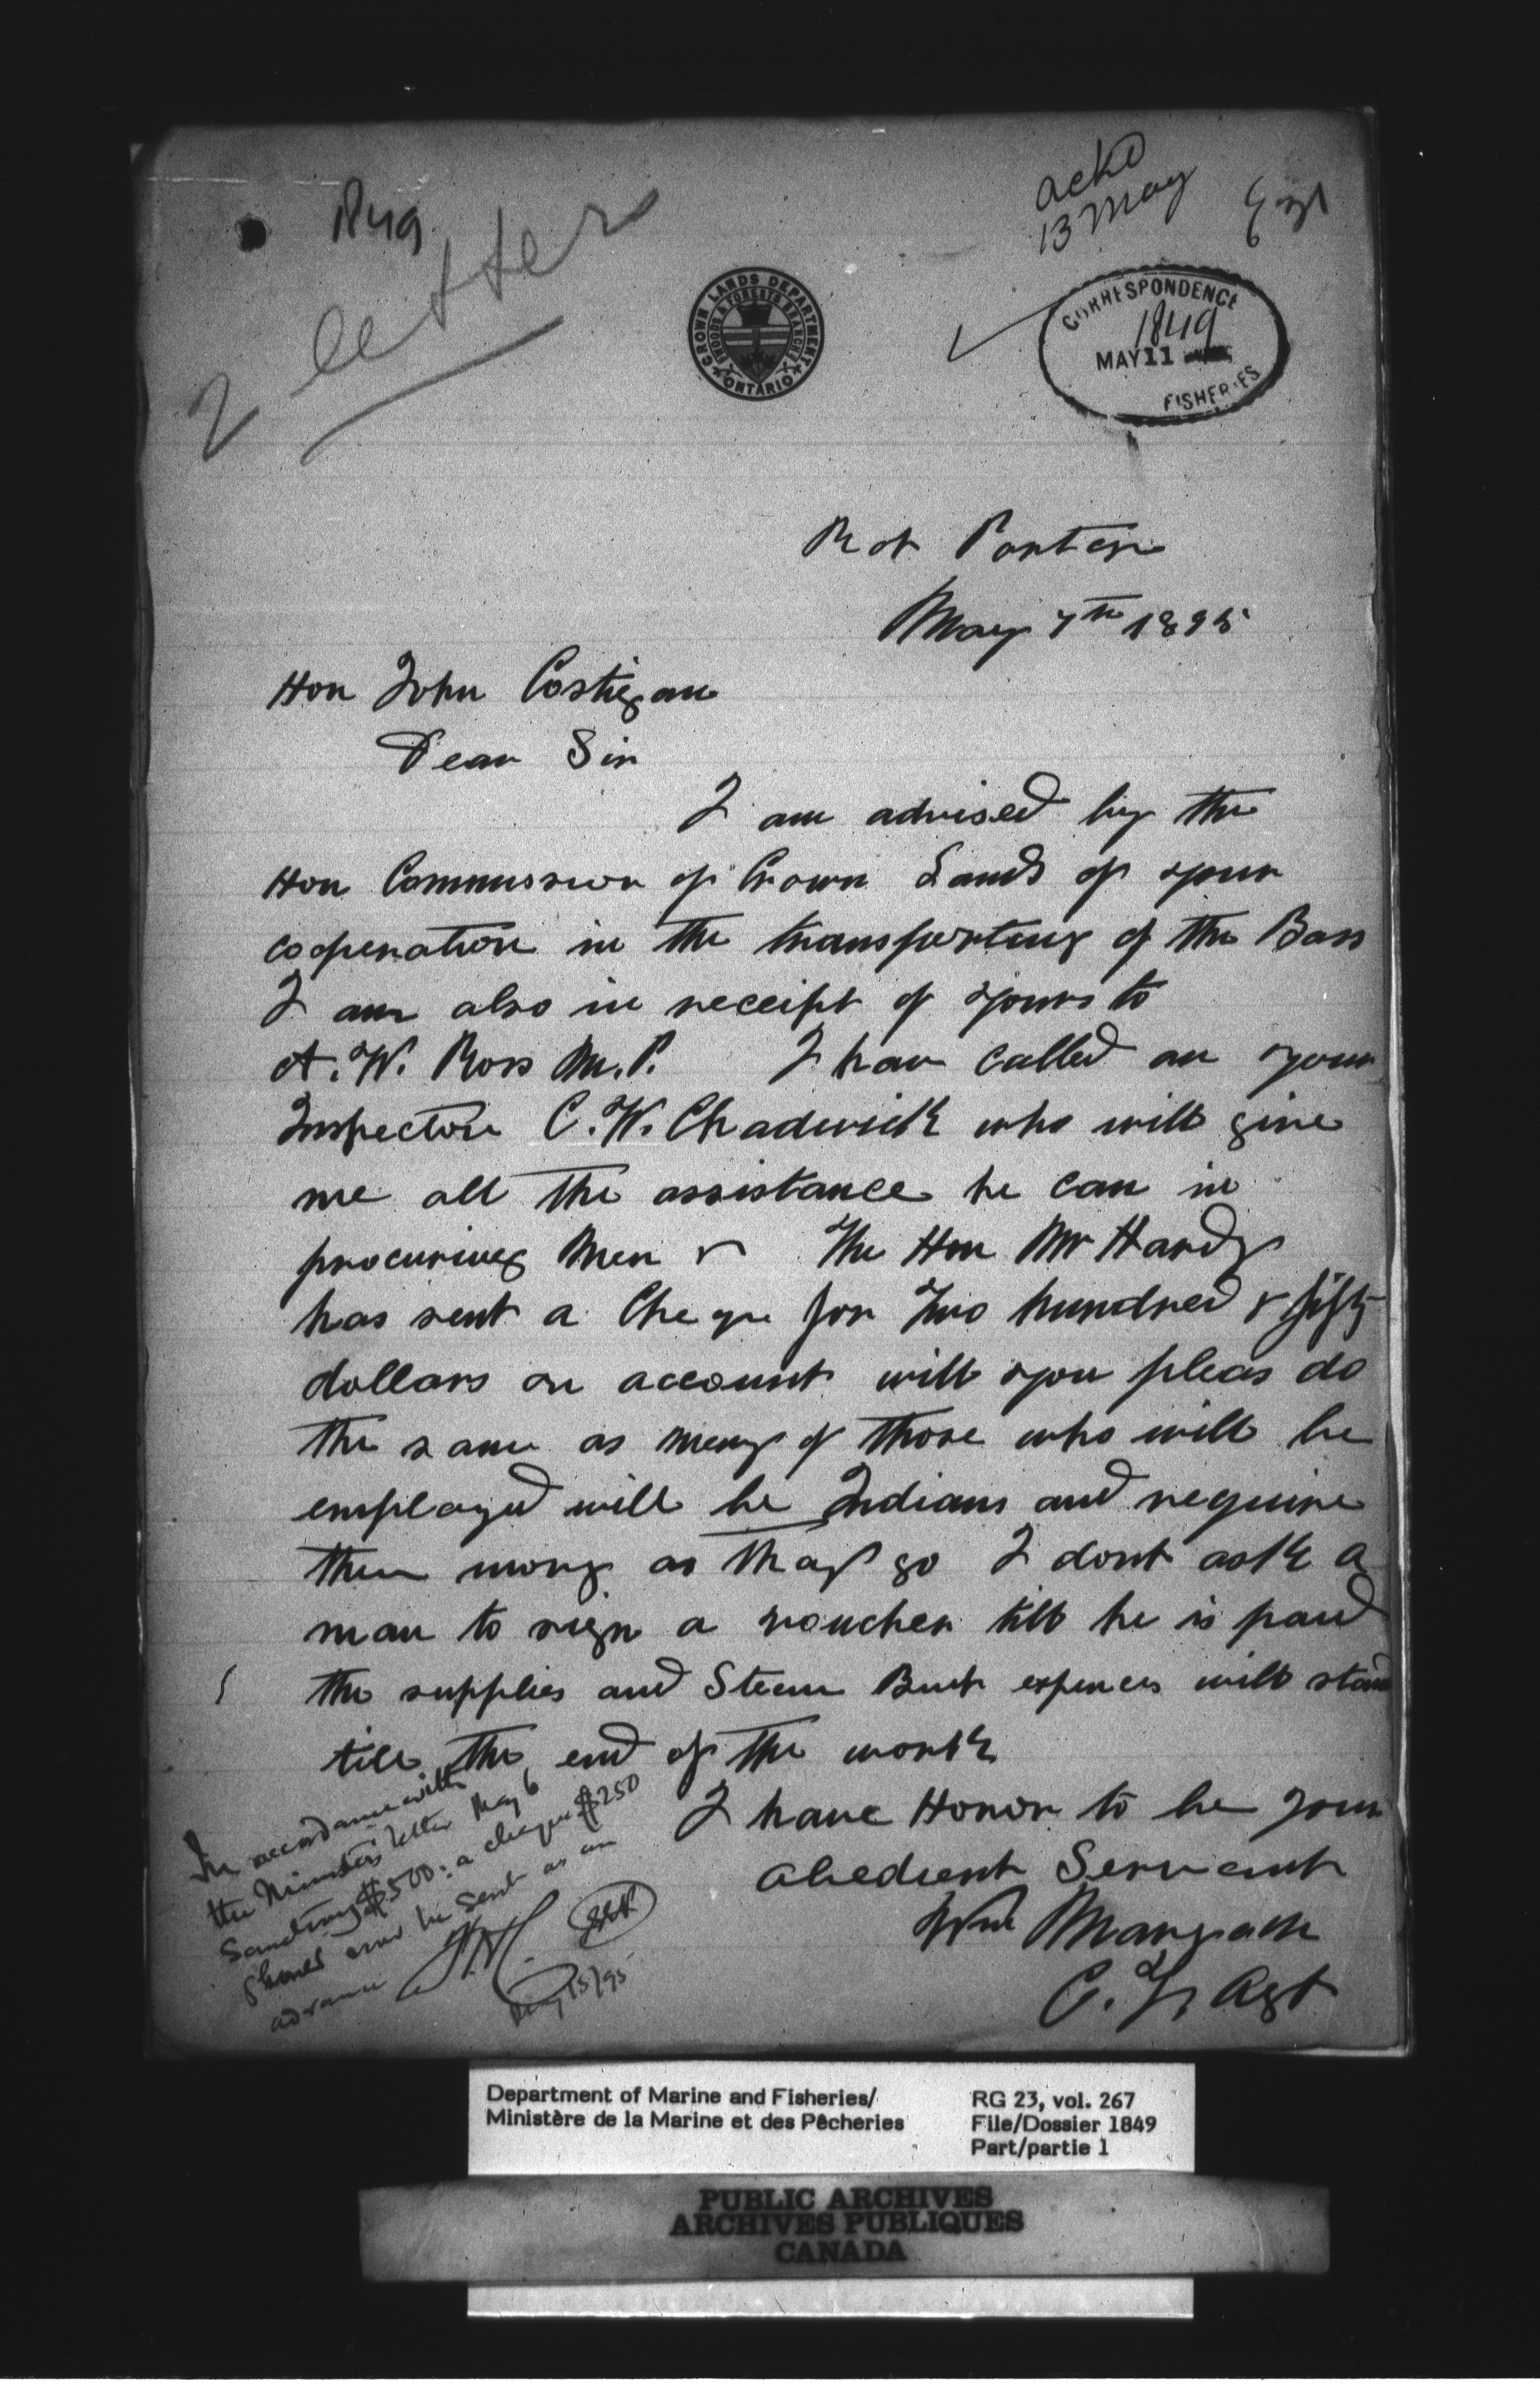 1849
2 letter
ackd
13 May
CROWN LANDS DEPARTMENT
WOODS & FORESTS BRANCH
ONTARIO
CORRESPONDENCE
1849
MAY 11
FISHERIES
Rat Portage
May 7th 1895
Hon John Costigan
Dear Sir
I am advised by the
Hon Commission of Crown Lands of your
cooperation in the transporting of the Bass
I am also in receipt of yours to
A. W. Ross M.P. I hav called on your
Inspector C. W. Chadwick who will give
me all the assistance he can in
procuring Men & The Hon Mr Hardy
has sent a Cheque for Two hundred & fifty
dollars on account will you pleas do
the same as meny of those who will be
employed will be Indians and require
then mony as thay go I dont ask a
man to sign a voucher till he is paid
the supplies and Steam Boat expences will stand
till the end of the work
I have Honor to be your
obedient Servant
Wm Margach
C. T. Agt
In accordance with
the Minister's letter May 6
Sanctiong $500: a cheque $250
should now be sent as an
advance
May 15/95
Department of Marine and Fisheries/
Ministère de la Marine et des Pêcheries
RG 23, vol. 267
File/Dossier 1849
Part/partie 1
PUBLIC ARCHIVES
ARCHIVES PUBLIQUES
CANADA